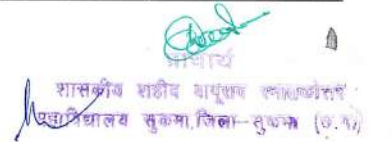 प्राचार्य
शासकीय शहीद बापूराव स्नातकोत्तर
महाविद्यालय सुकमा, जिला-सुकमा (छ.ग)